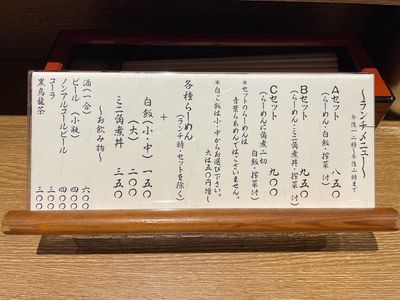 〜ランチメニュー〜
午後一二時〜午後二時まで
Aセット 八五〇
(らーめん・白飯・搾菜 付)
Bセット 九五〇
(らーめん・ミニ角煮丼・搾菜 付)
Cセット 九〇〇
(らーめんに角煮二切
白飯・搾菜 付)
*セットのらーめんは
音葉らあめんではございません。
*白ご飯は小・中からお選び下さい。
大は五〇円増し
各種らーめん
(ランチ時・セットを除く)
+
白飯(小・中) 一五〇
(大) 二〇〇
ミニ角煮丼 三五〇
〜お飲み物〜
酒(一合) 六〇〇
ビール(小瓶) 四〇〇
ノンアルコールビール 四〇〇
コーラ 三〇〇
黒烏龍茶 三〇〇